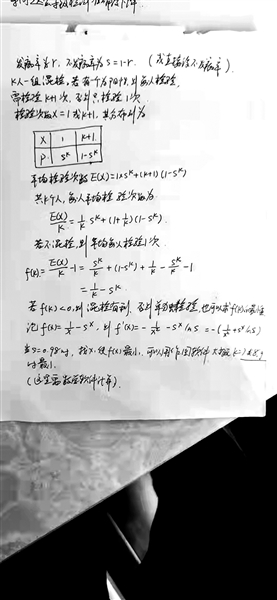 发病率为r,不发病率为 s=1-r.
k人一组混检,若有一个为阳性,则每人检验,
需检验 k+1 次,否则只检验1次
检验次数X=1或k+1,其分布列为
X 1 k+1
P s^k 1-s^k
平均检验次数 E(X)=1×s^k+(k+1)(1-s^k)
共k个人,每人平均检验次数为
E(X)/k = 1/k·s^k+(1+1/k)(1-s^k).
若不混检,则平均每人检验1次
f(k)=E(X)/k-1=s^k/k+(1-s^k)+1/k-s^k/k-1
=1/k-s^k
若 f(k)<0,则混检有利,否则单独检验,也可以求f(k)
记 f(x)=1/x-s^x,则 f'(x)=-1/x²-s^x ln s=-(1/x²+s^x ln s)
当 s=0.98时,找x,使f(x)最小,可以用作图软件
时最小.